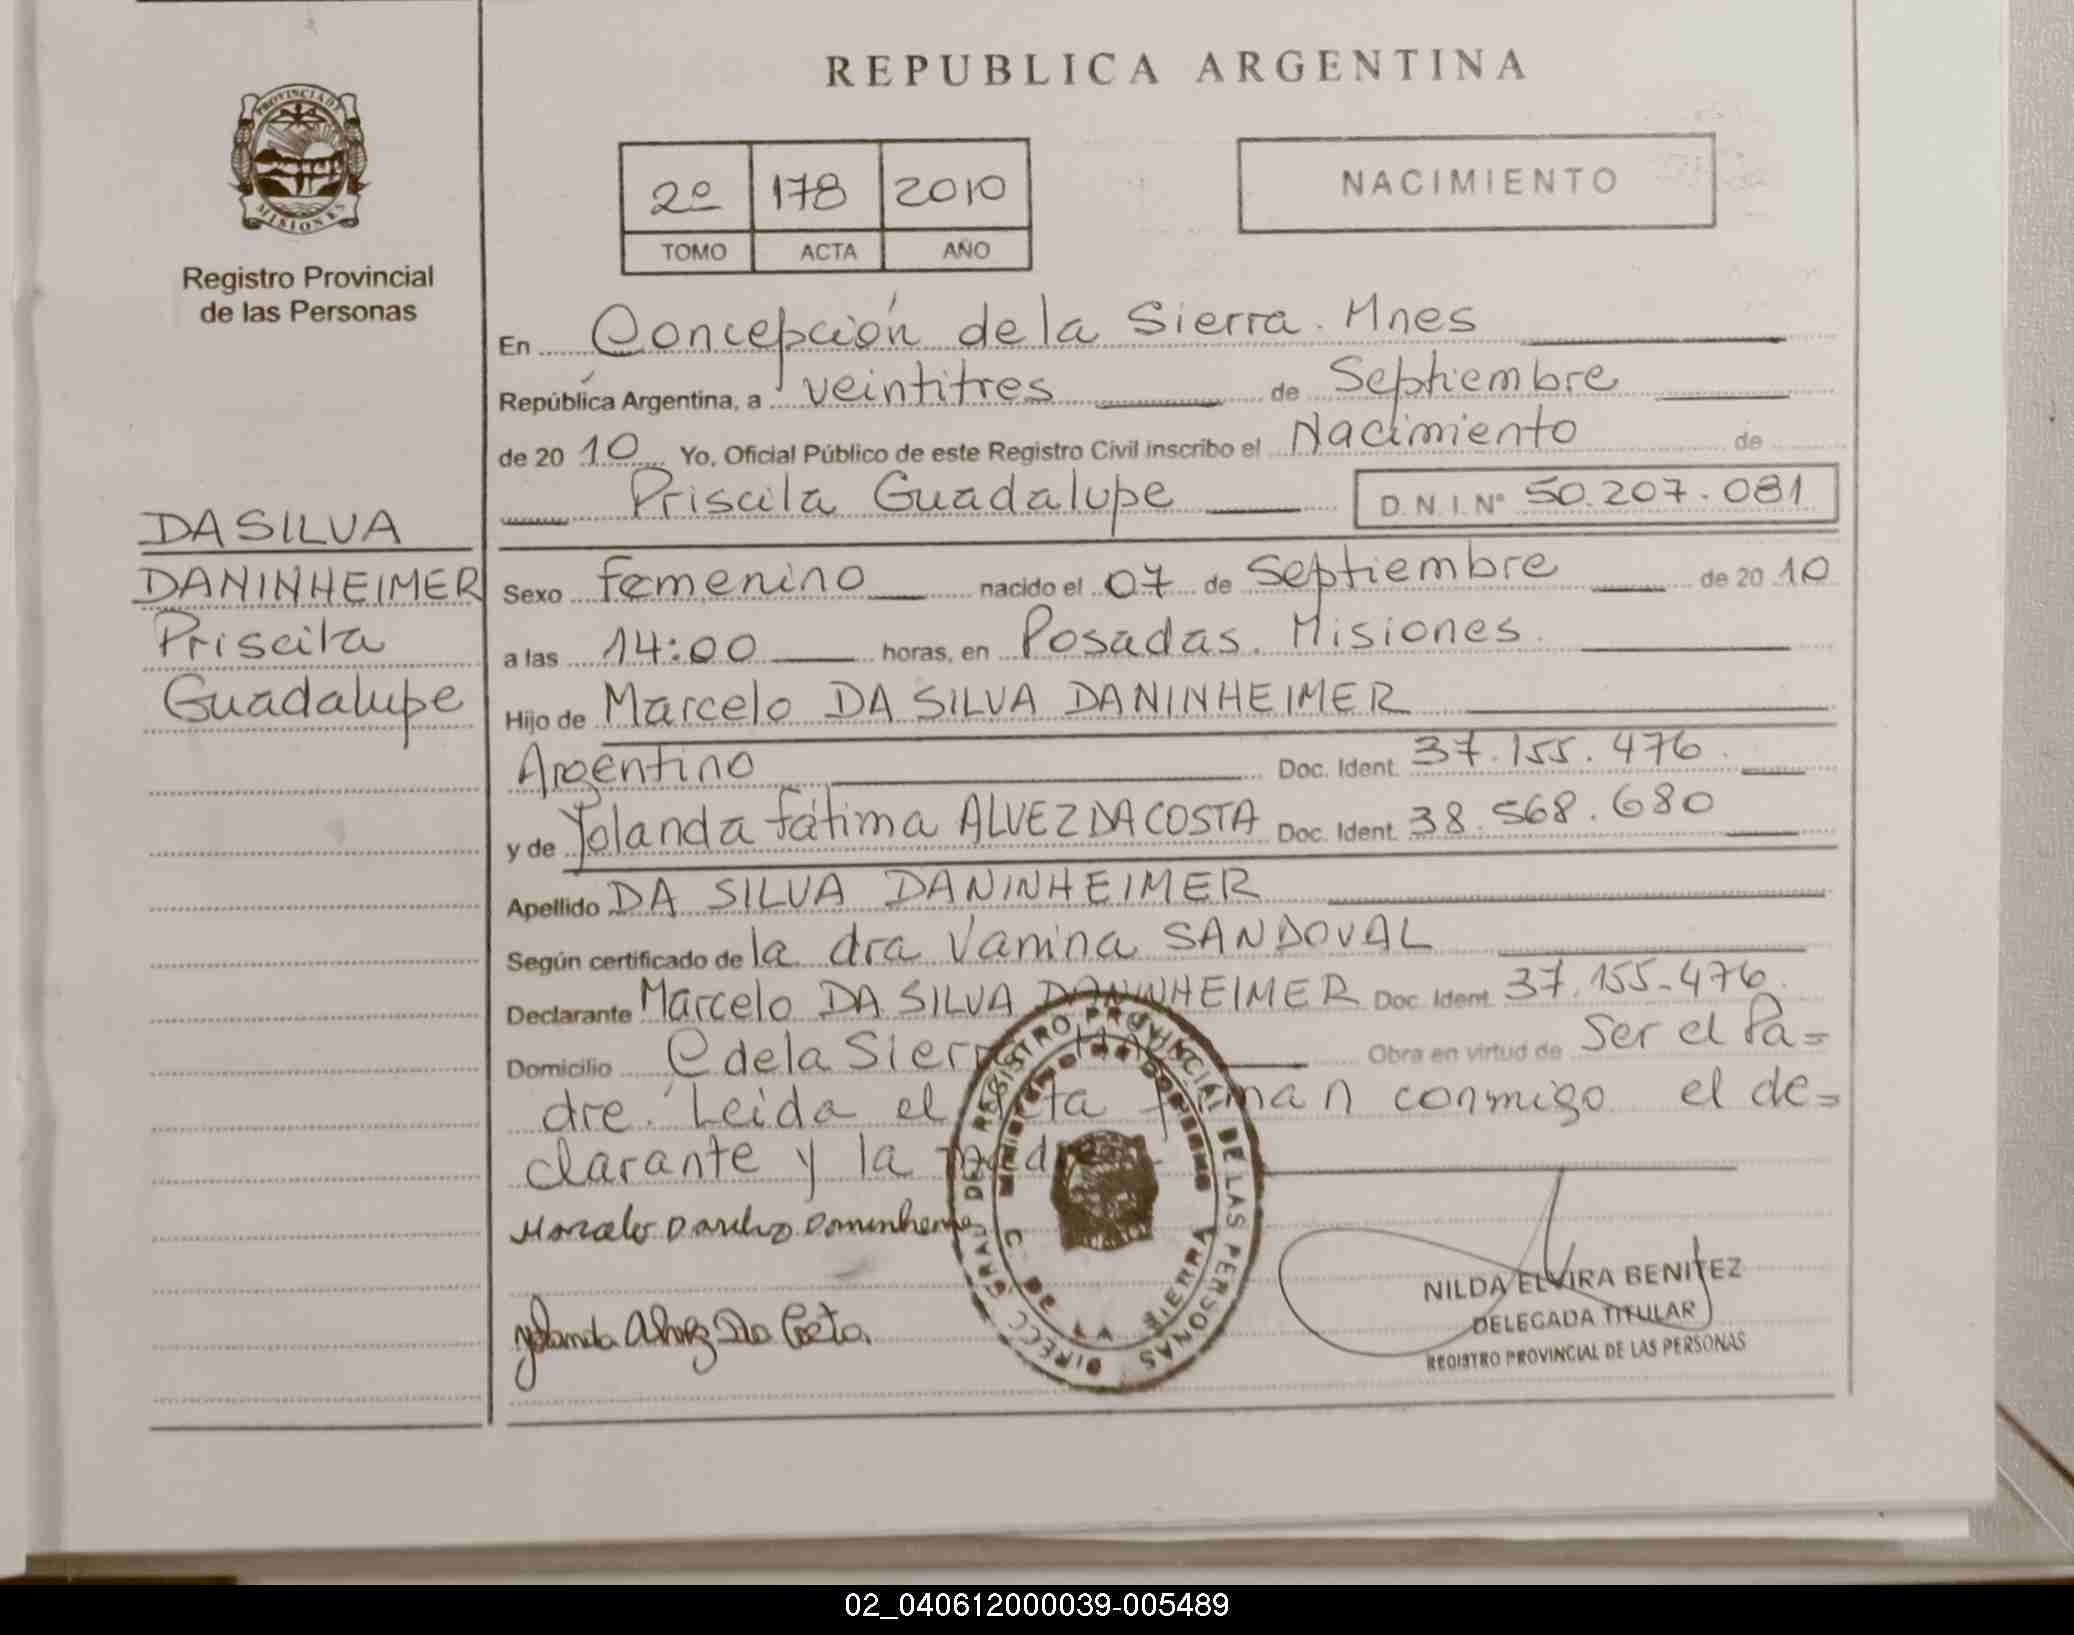 REPUBLICA ARGENTINA
PROVINCIA DE
MISIONES
Registro Provincial
de las Personas
2º 178 2010
TOMO ACTA AÑO
NACIMIENTO
DA SILVA
DANINHEIMER
Priscila
Guadalupe
En Concepción de la Sierra. Mnes
República Argentina, a veintitres de Septiembre
de 20 10 Yo, Oficial Público de este Registro Civil inscribo el Nacimiento de
Priscila Guadalupe D.N.I.Nº 50.207.081
Sexo femenino nacido el 07 de Septiembre de 20 10
a las 14:00 horas, en Posadas. Misiones.
Hijo de Marcelo DA SILVA DANINHEIMER
Argentino Doc. Ident. 37.155.476.
y de Yolanda fátima ALVEZ DA COSTA Doc. Ident. 38.568.680
Apellido DA SILVA DANINHEIMER
Según certificado de la dra Vanina SANDOVAL
Declarante Marcelo DA SILVA DANINHEIMER Doc. Ident. 37.155-476.
Domicilio C de la Sierra Obra en virtud de Ser el Pa=
dre. Leida el acta firman conmigo el de=
clarante y la madre.
DIRECC. GRAL. DEL REGISTRO PROVINCIAL DE LAS PERSONAS
C. DE LA SIERRA
Yolanda Alvez Da Costa.
NILDA ELVIRA BENITEZ
DELEGADA TITULAR
REGISTRO PROVINCIAL DE LAS PERSONAS
02_040612000039-005489